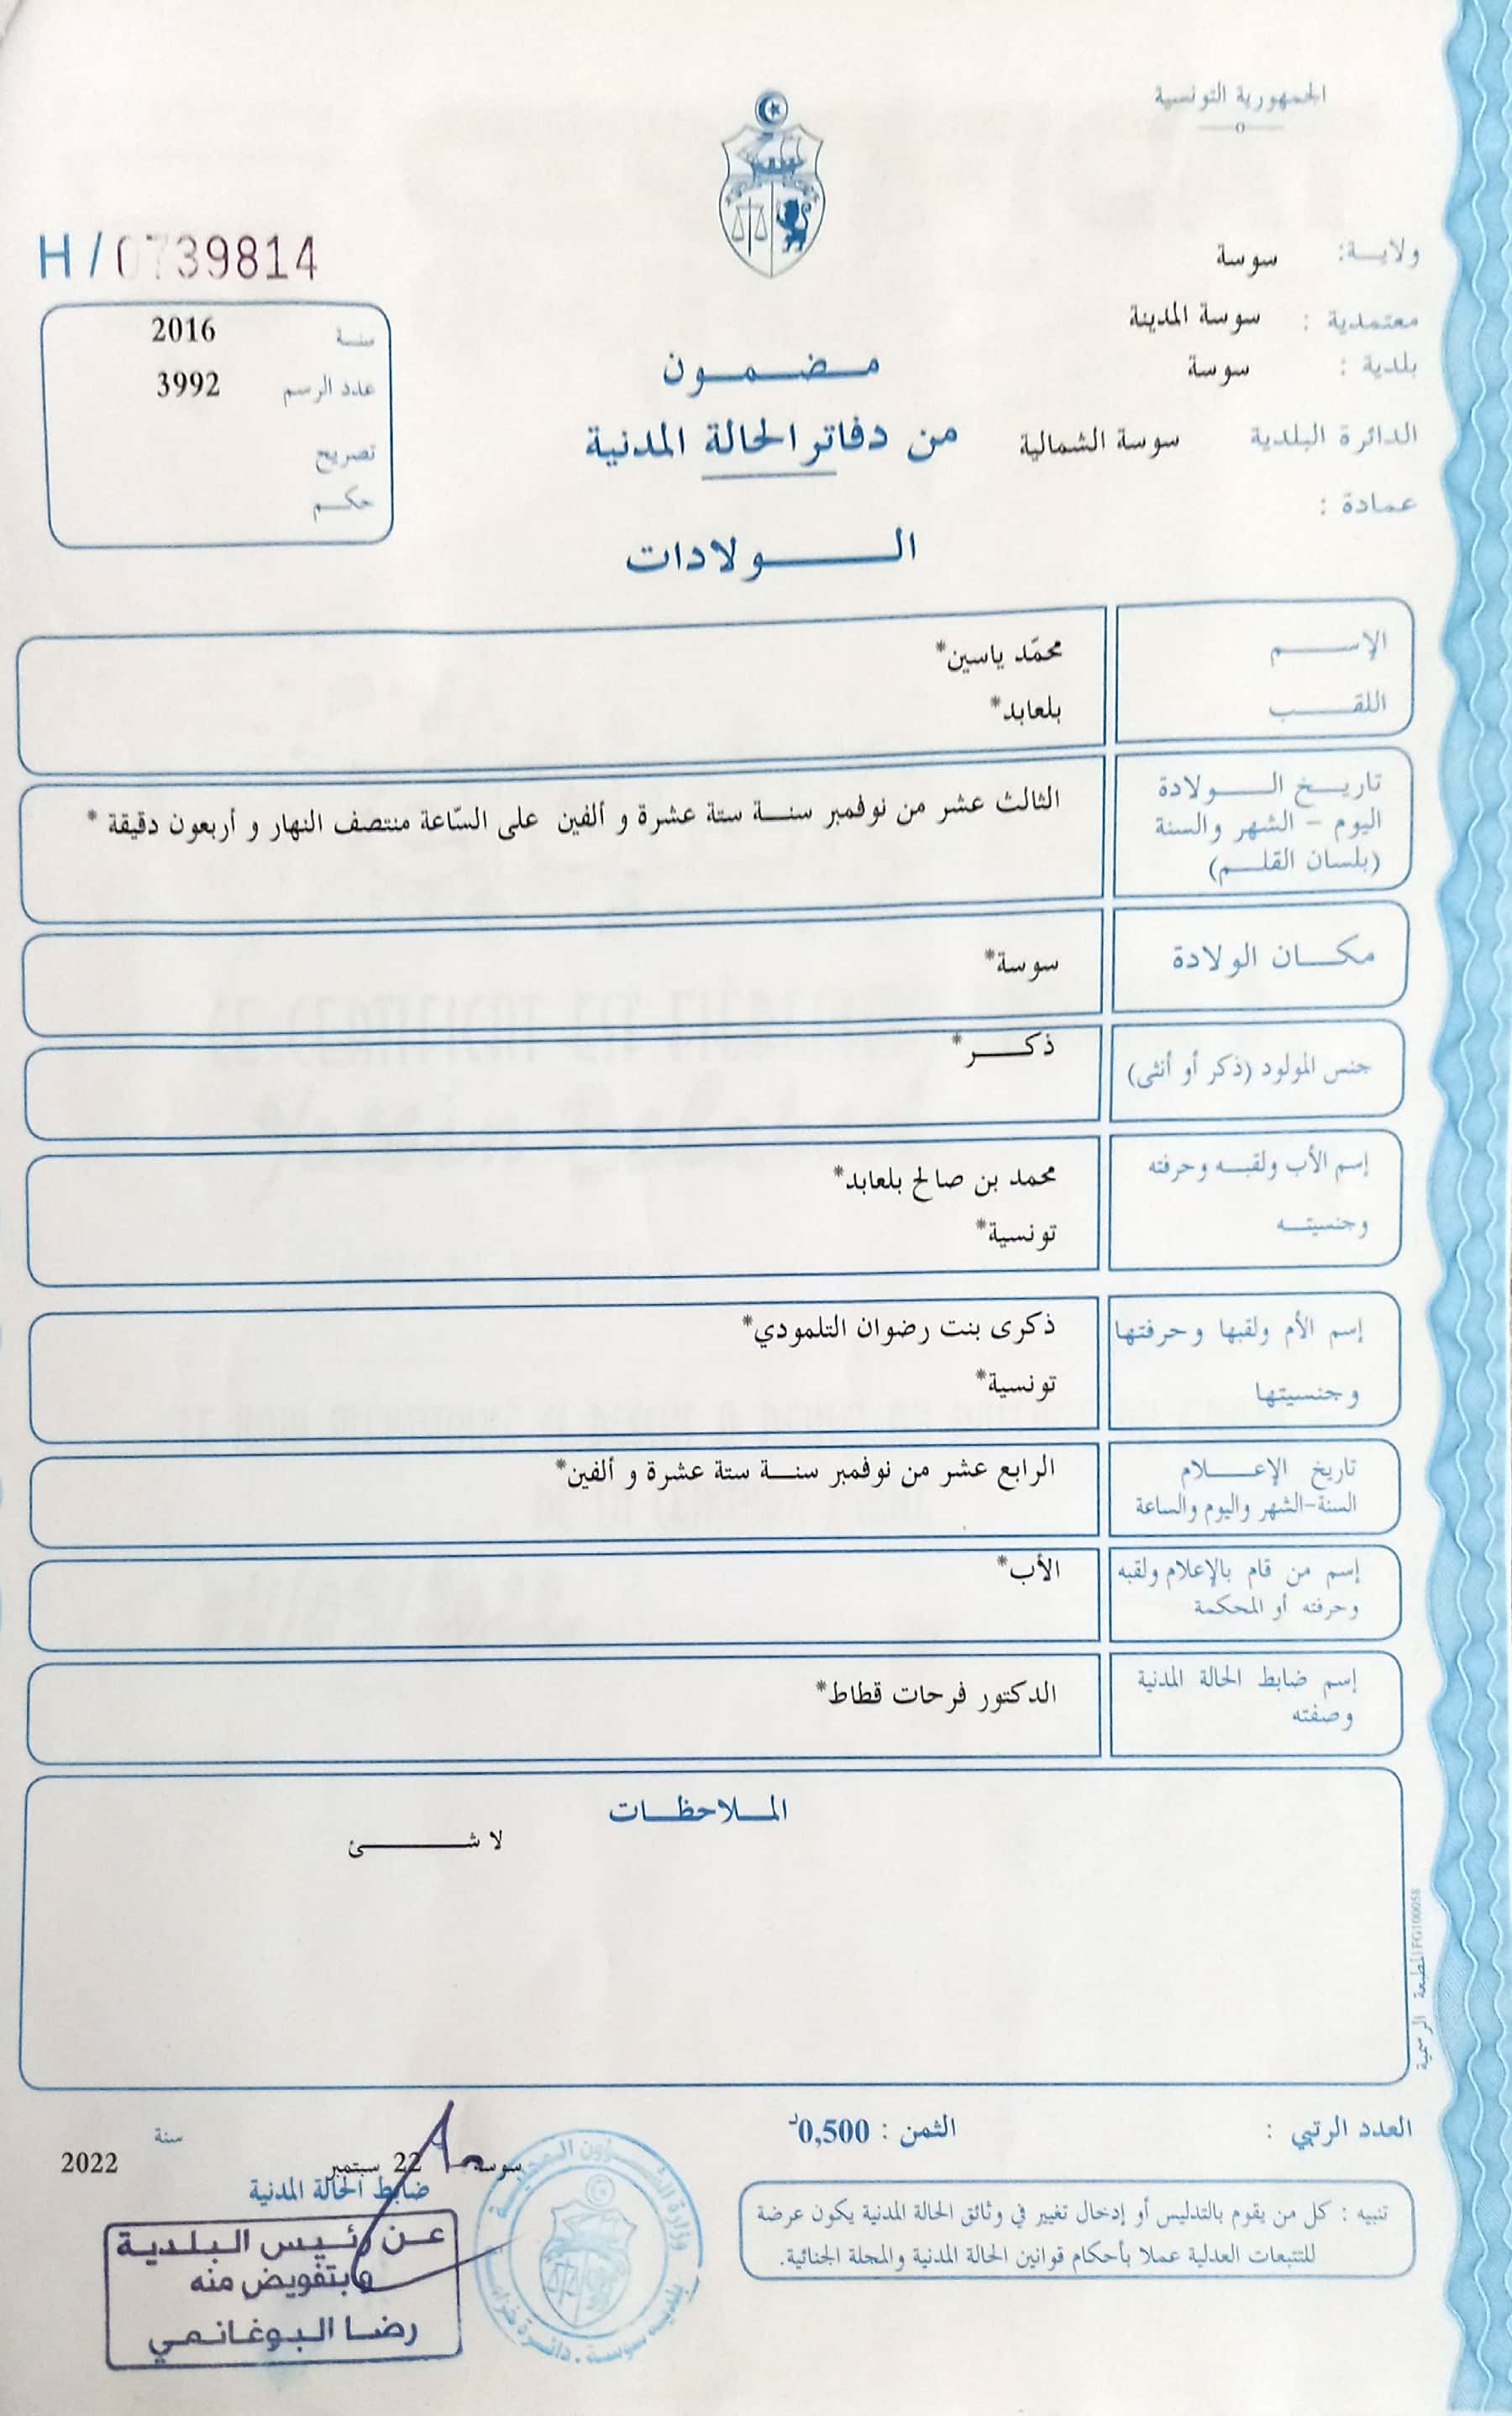 الجمهورية التونسية
ولاية: سوسة
معتمدية : سوسة المدينة
بلدية : سوسة
الدائرة البلدية سوسة الشمالية
عمادة :
مضمون
من دفاتر الحالة المدنية
الولادات
H/0739814
سنة 2016
عدد الرسم 3992
تصريح
حكم
الإسم محمّد ياسين*
اللقب بلعابد*
تاريخ الولادة
اليوم – الشهر والسنة
(بلسان القلم)
الثالث عشر من نوفمبر سنة ستة عشرة و ألفين على السّاعة منتصف النهار و أربعون دقيقة *
مكان الولادة سوسة*
جنس المولود (ذكر أو أنثى) ذكر*
إسم الأب ولقبه وحرفته محمد بن صالح بلعابد*
وجنسيته تونسية*
إسم الأم ولقبها وحرفتها ذكرى بنت رضوان التلمودي*
وجنسيتها تونسية*
تاريخ الإعلام
السنة-الشهر واليوم والساعة
الرابع عشر من نوفمبر سنة ستة عشرة و ألفين*
إسم من قام بالإعلام ولقبه
وحرفته أو المحكمة
الأب*
إسم ضابط الحالة المدنية
وصفته
الدكتور فرحات قطاط*
الملاحظات
لا شئ
المطبعة الرسمية FG100058
العدد الرتبي :
الثمن : 0,500د
تنبيه : كل من يقوم بالتدليس أو إدخال تغيير في وثائق الحالة المدنية يكون عرضة
للتتبعات العدلية عملا بأحكام قوانين الحالة المدنية والمجلة الجنائية.
سوسة 22 سبتمبر سنة 2022
ضابط الحالة المدنية
عن رئيس البلدية
وبتفويض منه
رضا البوغانمي
بلدية سوسة